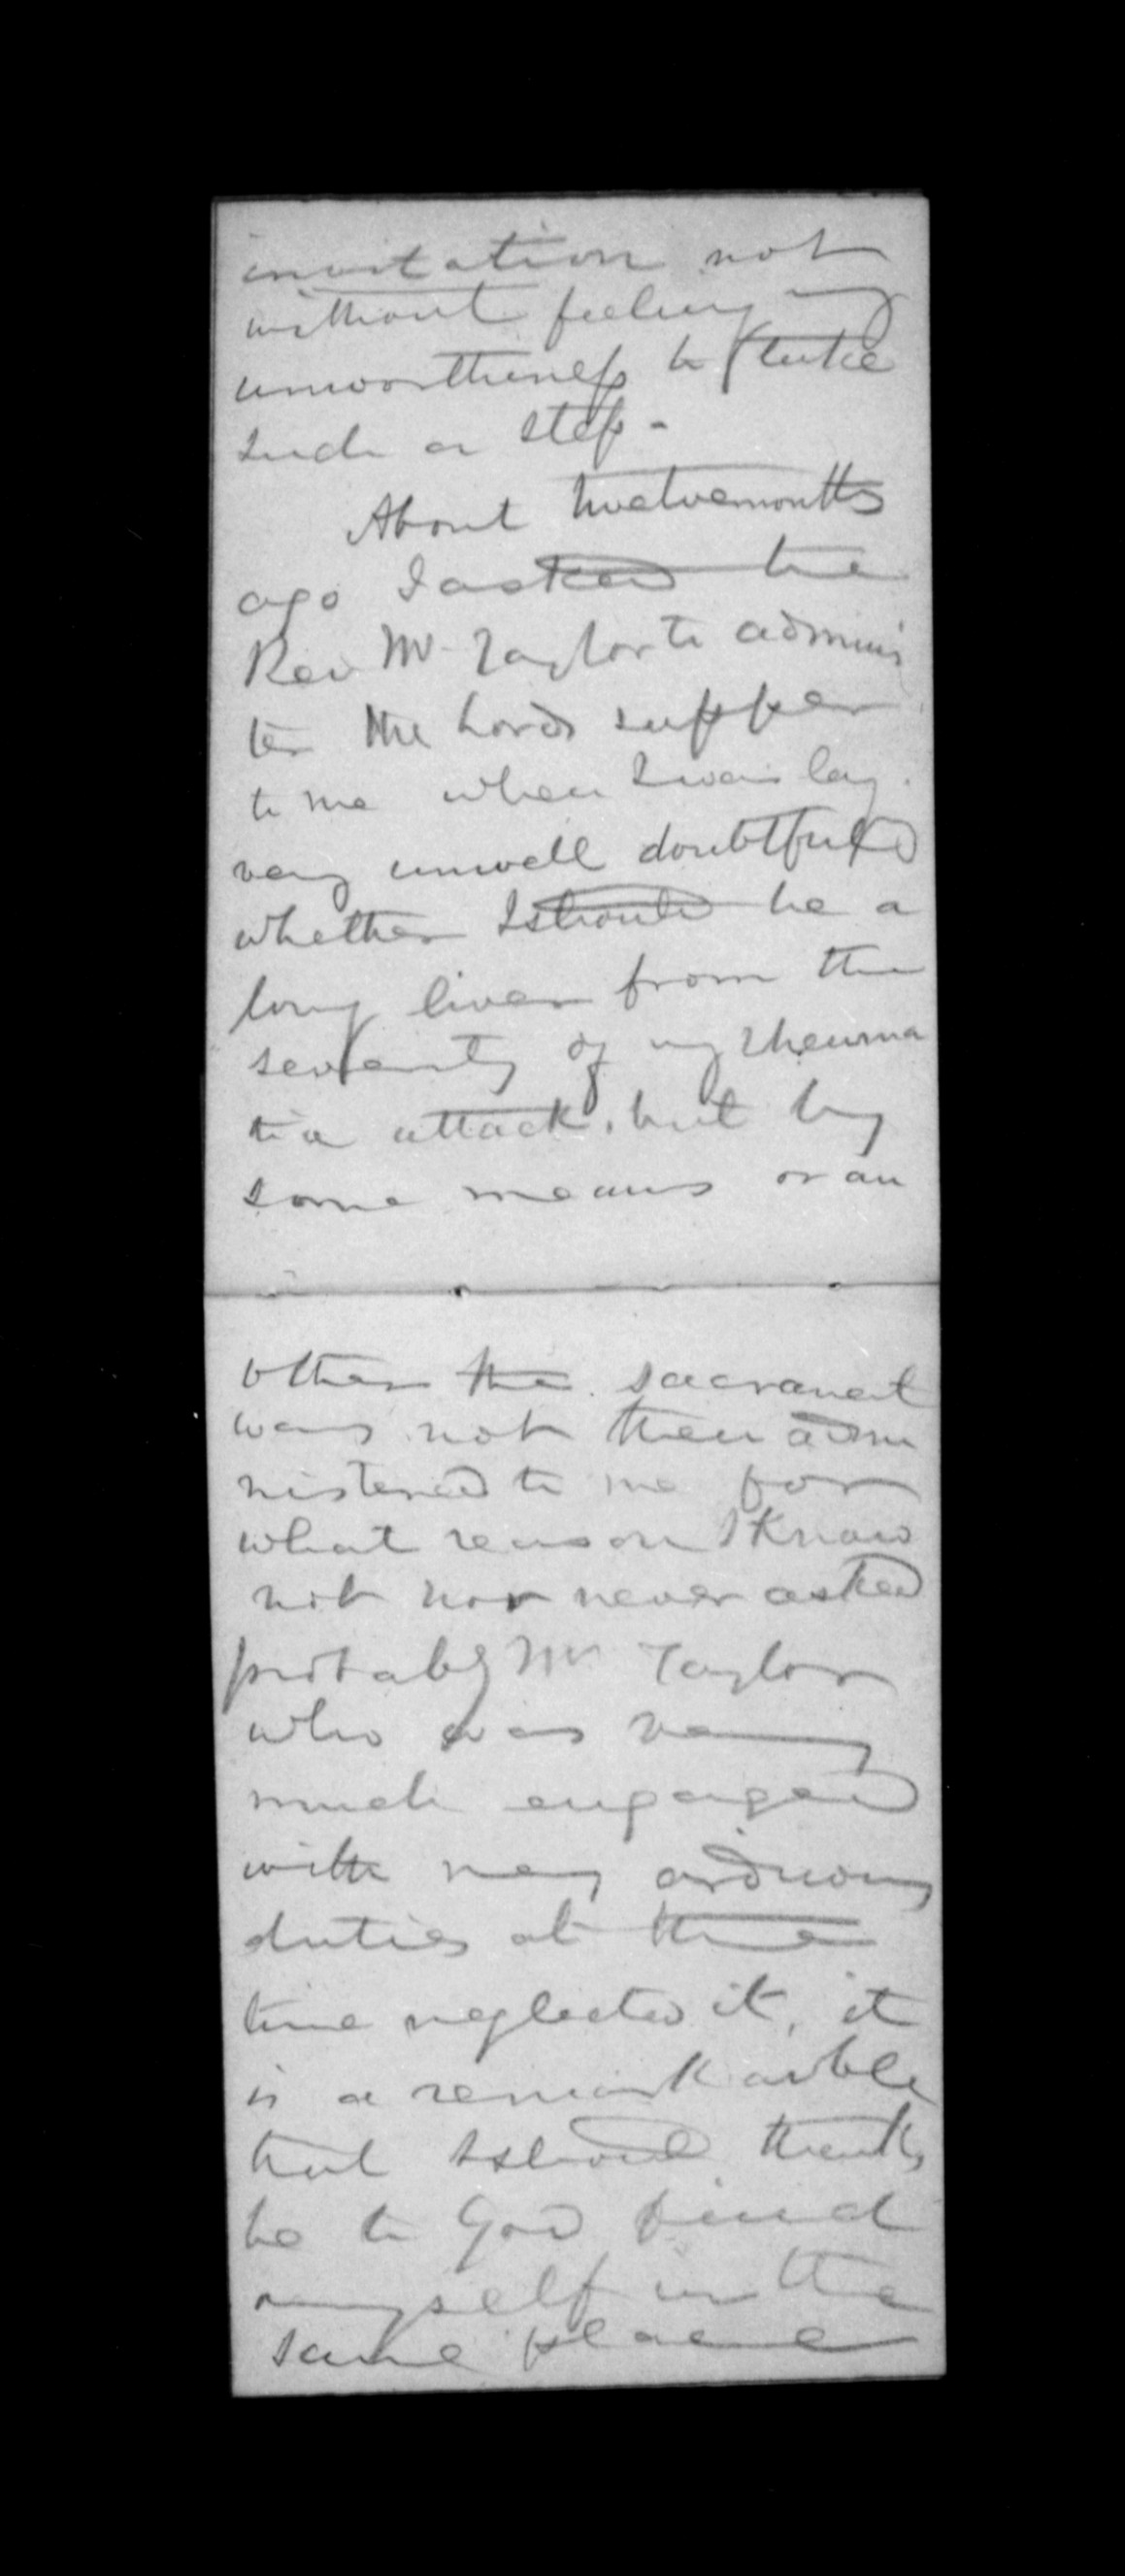 invitation not
without feeling my
unworthiness to take
such a step -
About twelvemonths
ago I asked the
Rev Mr Taylor to adminis
ter the Lords supper
to me when I was lay
very unwell doubtful
whether I should be a
long liver from the
severity of my rheuma
tic attack. but by
some means or an
other the sacrament
was not then admi
nistered to me for
what reason I know
not nor never asked
probably Mr Taylor
who was very
much engaged
with very arduous
duties at the
time neglected it, it
is a remarkable
that I should thanks
be to God find
myself in the
same place